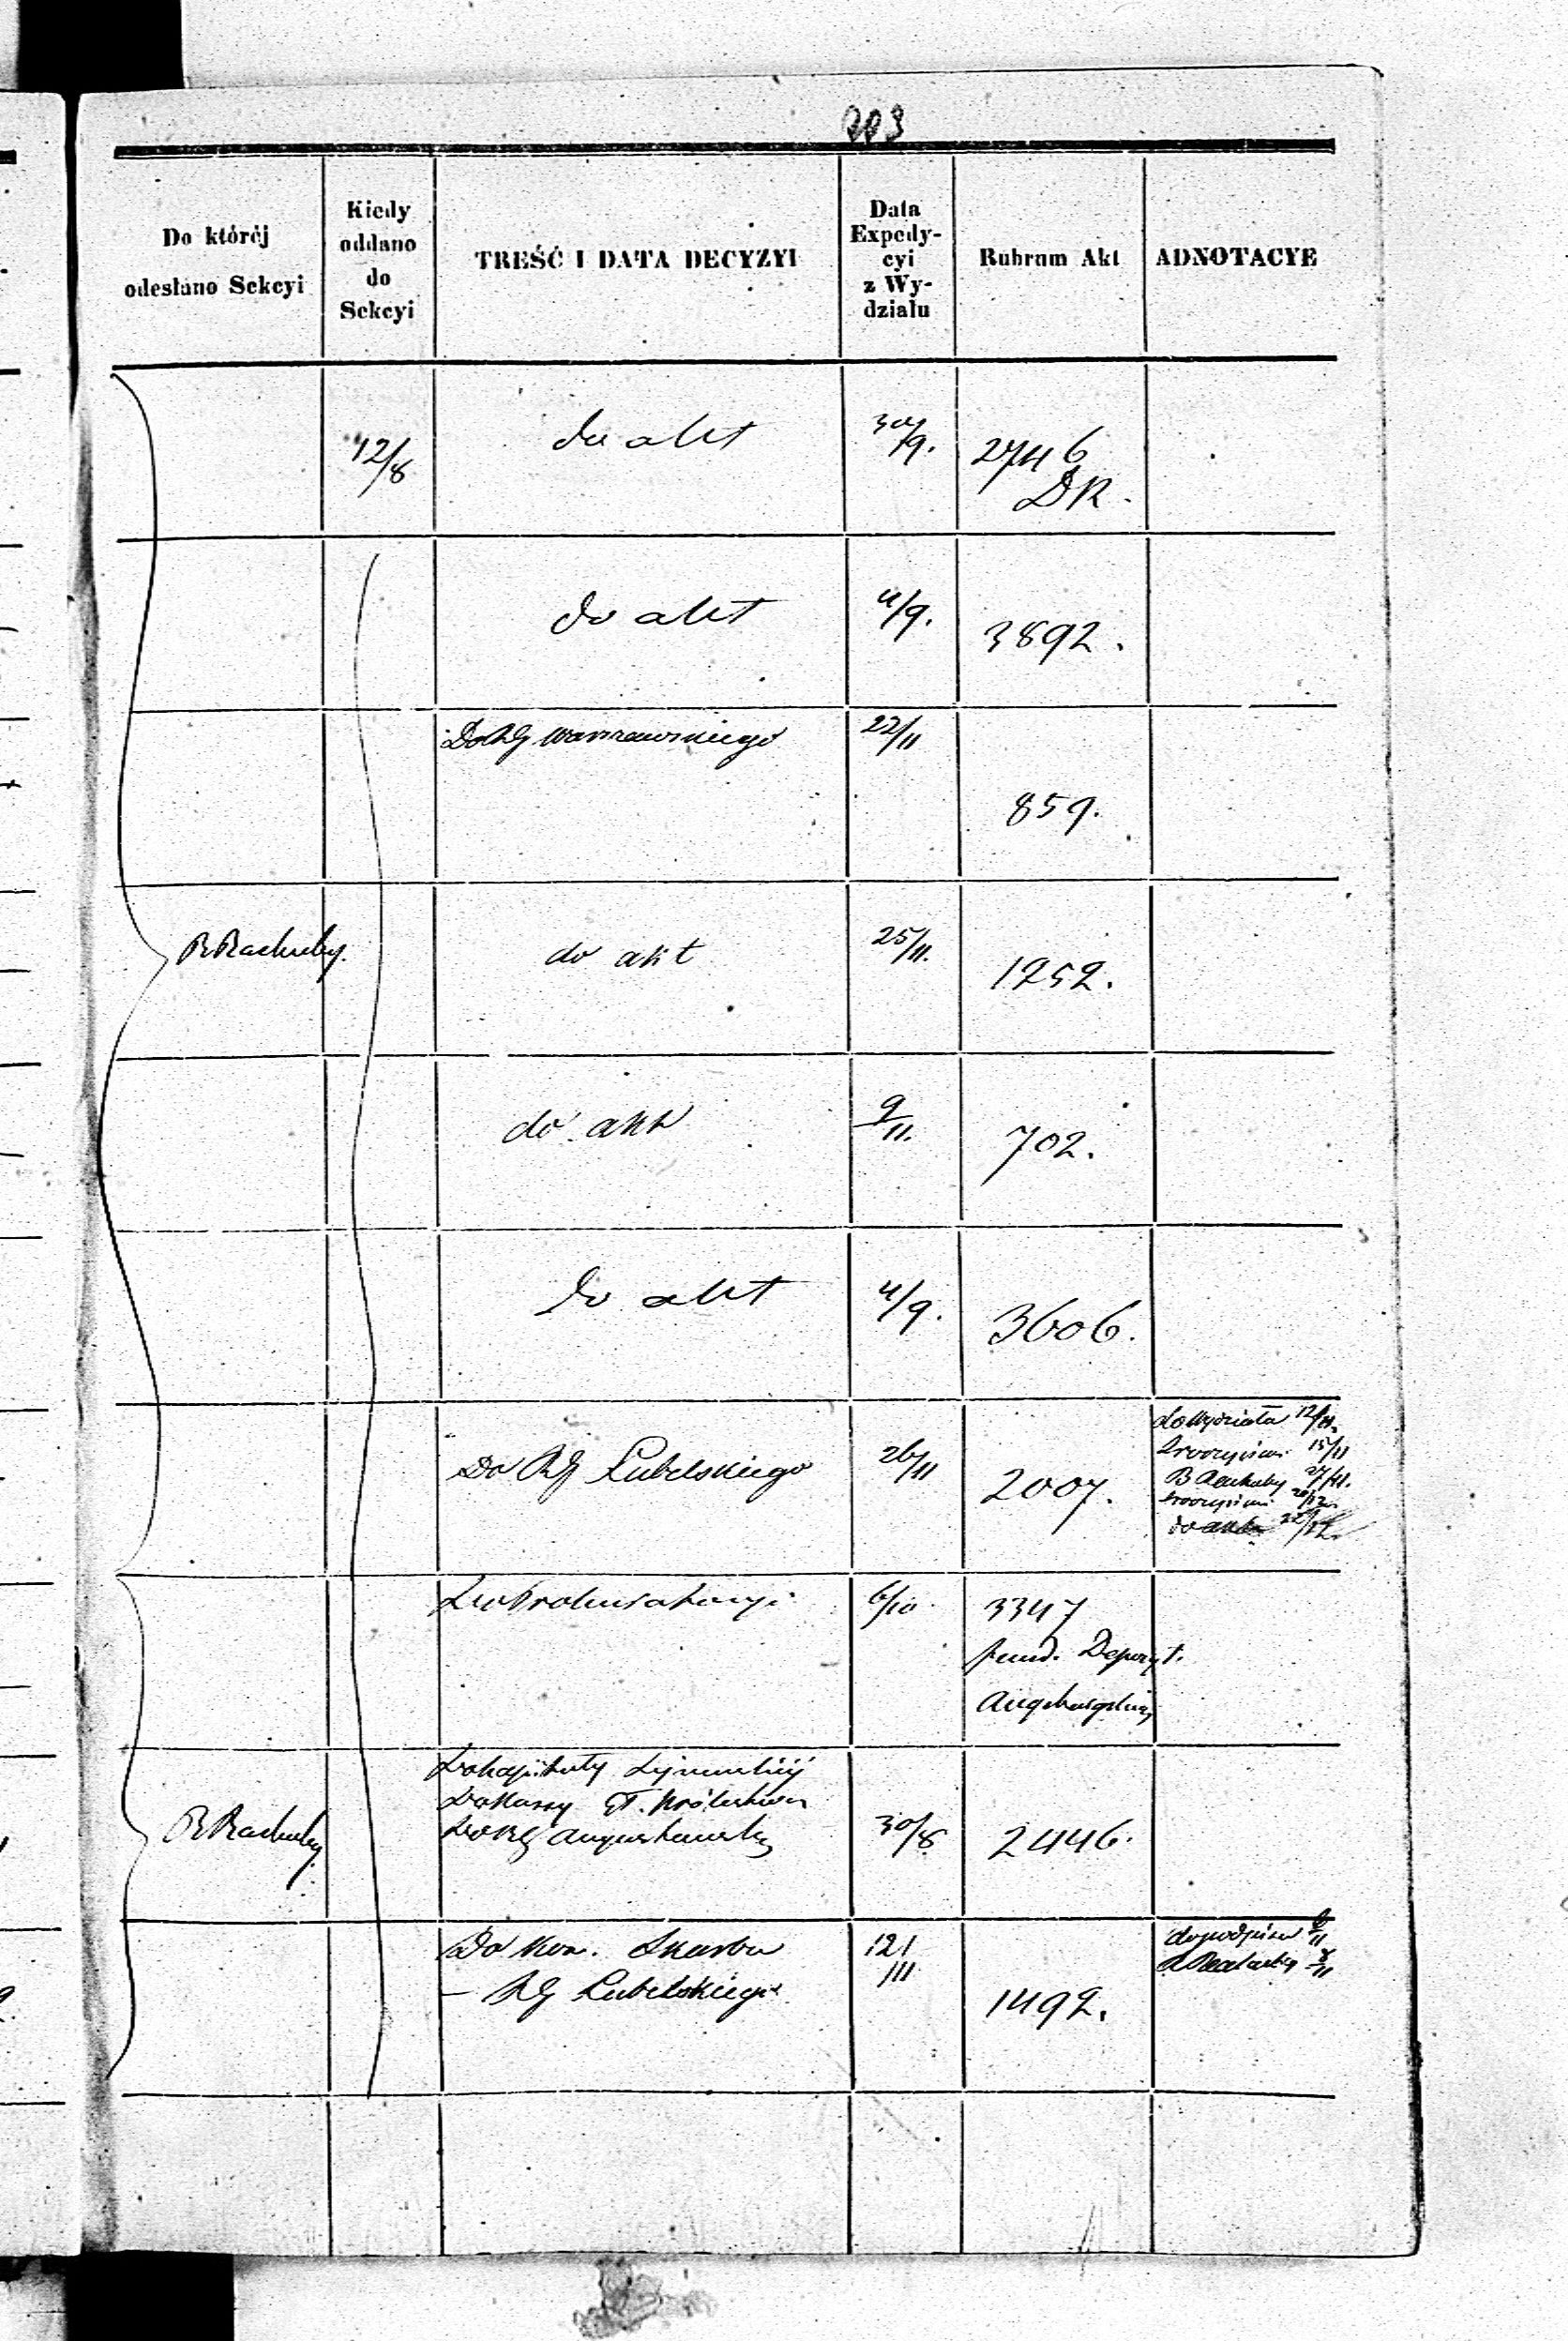 223
Do któréj
odesłano Sekcyi
Kiedy
oddano
do
Sekcyi
TREŚĆ I DATA DECYZYI
Data
Expedy-
cyi
z Wy-
działu
Rubrum Akt
ADNOTACYE
12/8
do akt
30/9.
2746
DR.
do akt
4/9.
3892.
Do RG Warszawskiego
22/11
859.
B Rachuby.
do akt
25/11.
1252.
do akt
9/11.
702.
do akt
4/9.
3606.
Do RG Lubelskiego
26/11
2007.
do Wydziału 12/11.
15/11
B Rachuby 27/11.
do akt 22/12.
Do Prokuratoryi
6/10.
3347
fund. Depozyt.
B Rachuby.
Do Kassy Gł. Królestwa
Do RG Augustowsk
30/8
2446.
Do Kom. Skarbu
– RG Lubelskiego
12/11
1492.
do podpisu 6/11
B Rachuby 8/11